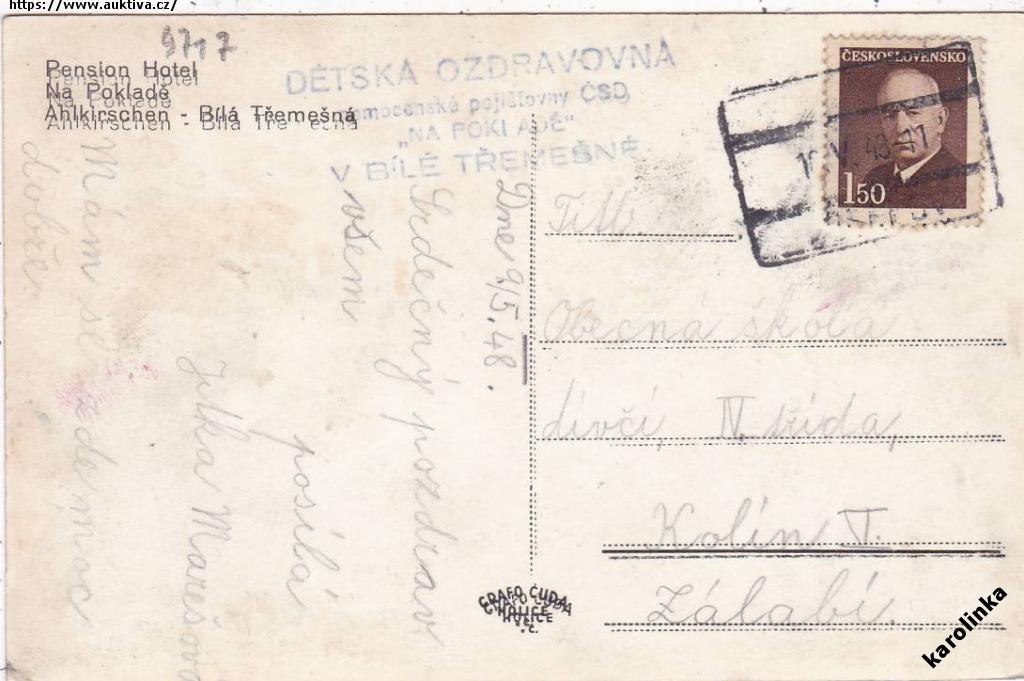 https://www.auktiva.cz/
9717
Pension Hotel
Na Pokladě
Ahlkirschen - Bílá Třemešná
DĚTSKÁ OZDRAVOVNA
nemocenské pojišťovny ČSD
„NA POKLADĚ"
V BÍLÉ TŘEMEŠNÉ
ČESKOSLOVENSKO
150
Dne 9/5.48.
Srdečný pozdrav
všem
posílá
Jitka Marešová
Mám se zde moc
dobře.
Titl.
Obecná škola
dívčí, IV. třída,
Kolín V.
Zálabí.
GRAFO ČUDA
HOLICE
karolinka